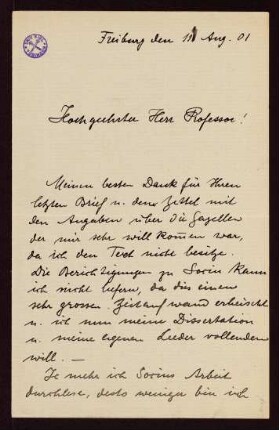 Freiburg den 11 Aug. 01
Hochgeehrter Herr Professor!
Meinen besten Dank für Ihren
letzten Brief u. den Zettel mit
den Angaben über die Gazellen
der mir sehr will kom̄en war,
da ich den Text nicht besitze.
Die Berichtigungen zu Socin kann
ich nicht liefern, da dies einen
sehr grossen Zeitaufwand erheischt
u. ich nun meine Dissertation
u. meine eigenen Lieder vollenden
will. —
Je mehr ich Socins Arbeit
durchlese, desto weniger bin ich